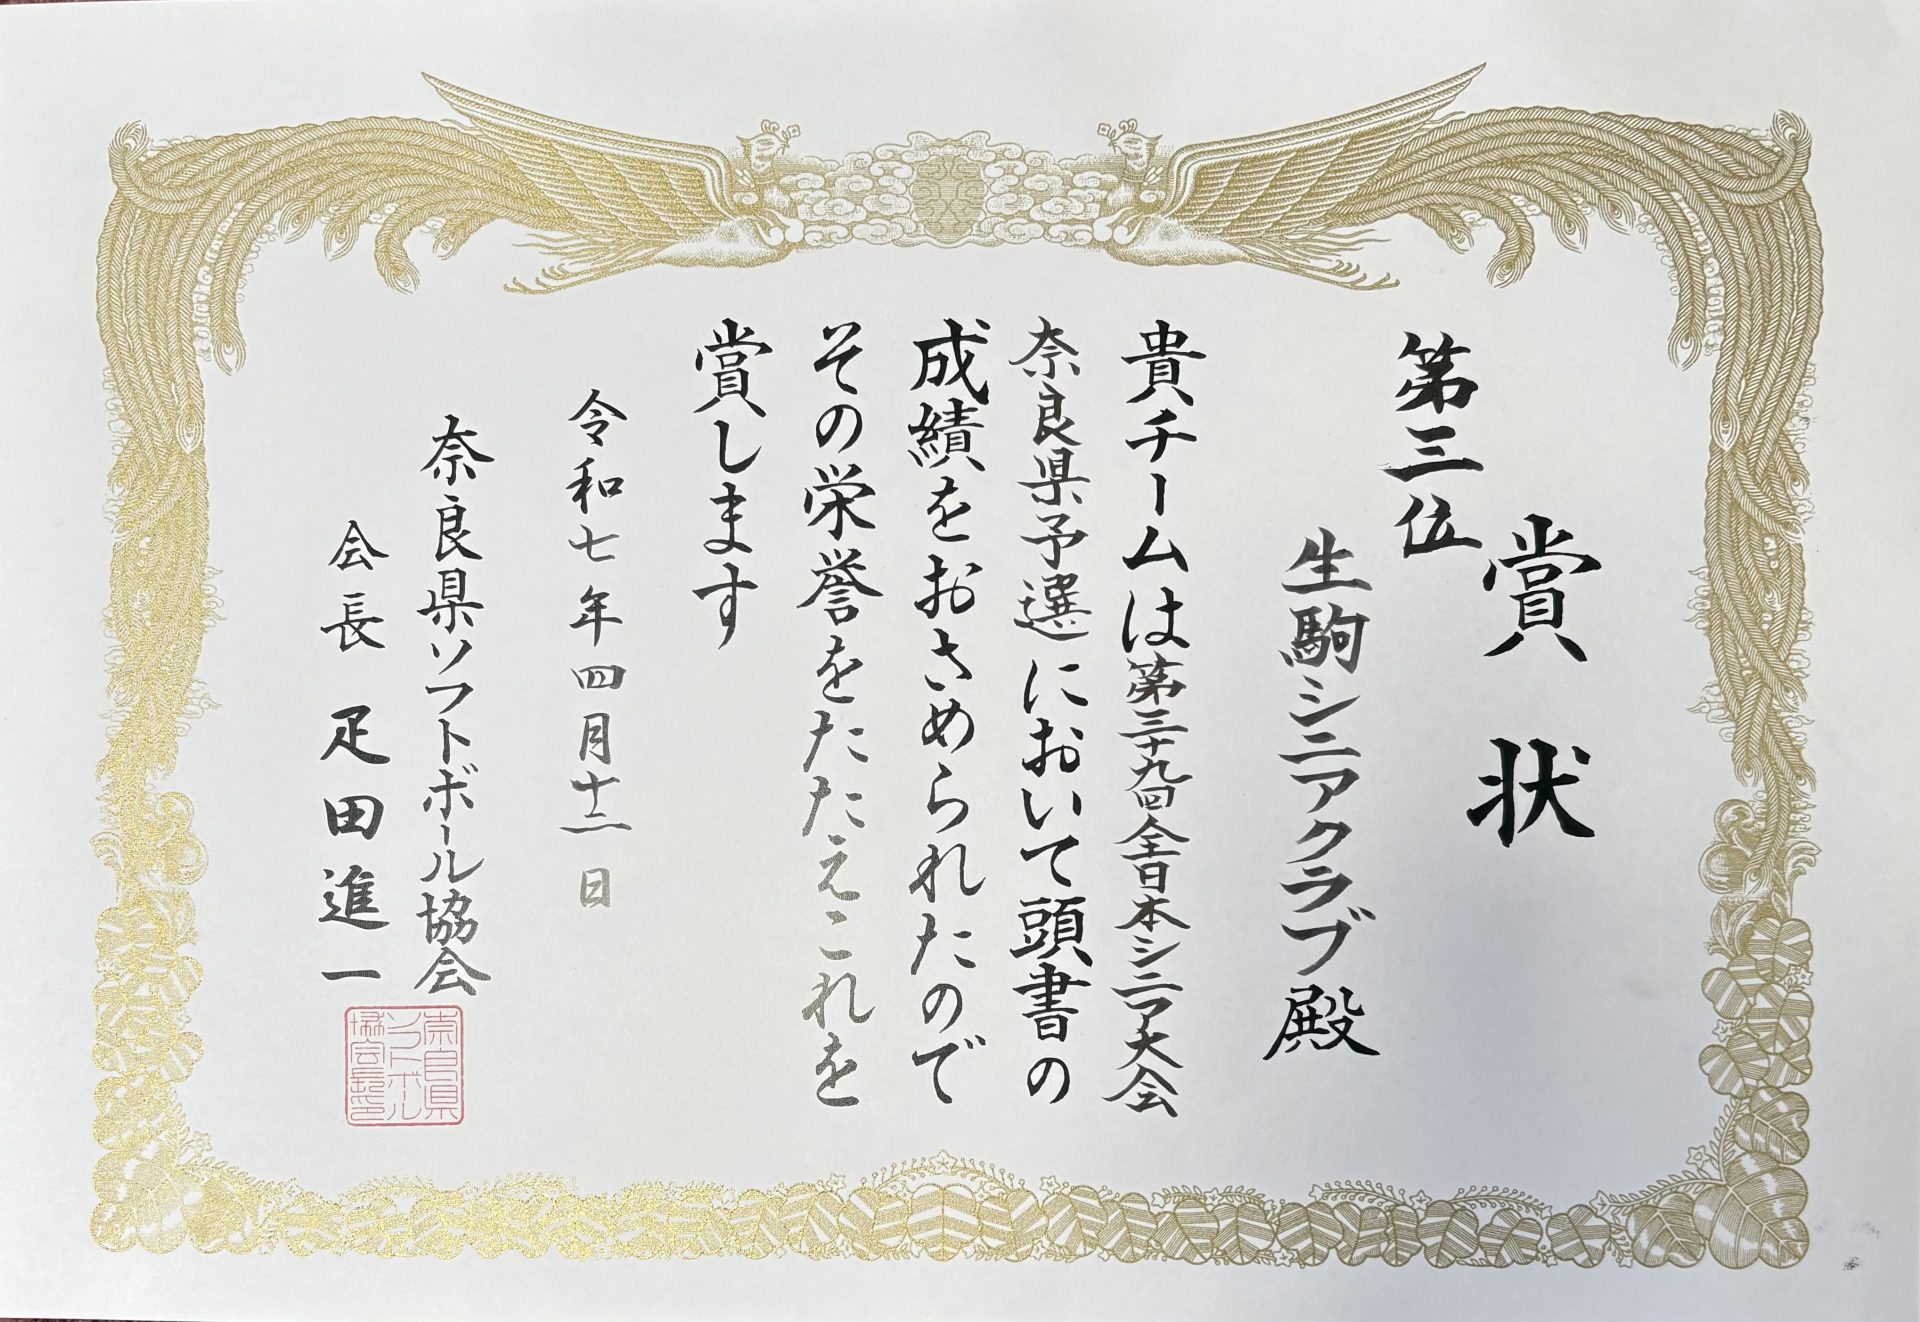 賞状
第三位
生駒シニアクラブ殿
貴チームは第三十九回全日本シニア大会
奈良県予選において頭書の
成績をおさめられたので
その栄誉をたたえこれを
賞します
令和七年四月十二日
奈良県ソフトボール協会
会長 疋田進一
奈良県
ソフトボール
協会長印